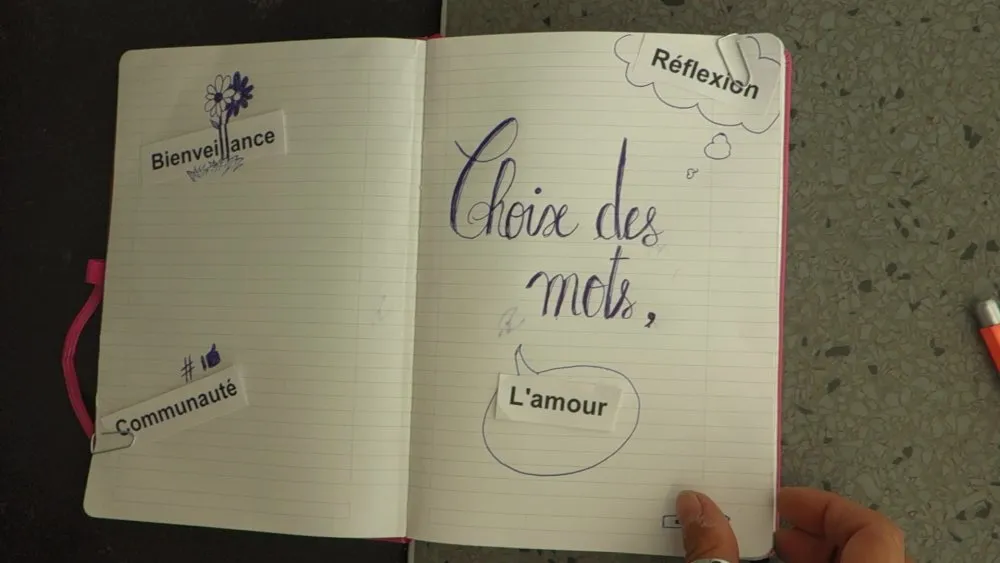 Bienveillance
# 
Communauté
Réflexion
Choix des
mots,
L'amour